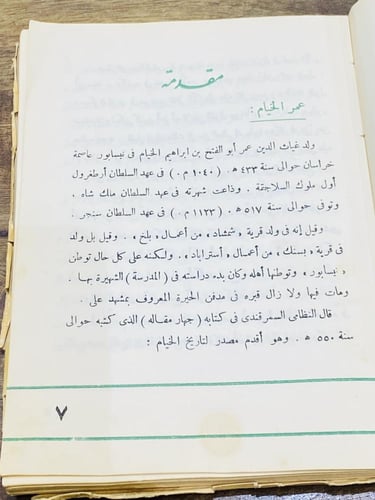 مقدمة
عمر الخيام :
ولد غياث الدين عمر أبو الفتح بن ابراهيم الخيام فى نيسابور عاصمة
خراسان حوالى سنة ٤٣٣ هـ . ( ١٠٤٠ م . ) فى عهد السلطان أرطغرول
أول ملوك السلاجقة . وذاعت شهرته فى عهد السلطان ملك شاه .
وتوفى حوالى سنة ٥١٧ هـ . ( ١١٢٣ م . ) فى عهد السلطان سنجر .
وقيل إنه فى ولد قرية « شمشاد » من أعمال « بلخ » . وقيل بل ولد
فى قرية « بسنك » من أعمال « أستراباد » . ولكنه على كل حال توطن
« نيسابور » وتوطنها أهله وكان بدء دراسته فى ( المدرسة ) الشهيرة بها .
ومات فيها ولا زال قبره فى مدفن الحيرة المعروف بمشهد على .
قال النظامى السمرقندى فى كتابه ( جهار مقاله ) الذى كتبه حوالى
سنة ٥٥٠ هـ . وهو أقدم مصدر لتاريخ الخيام :
٧